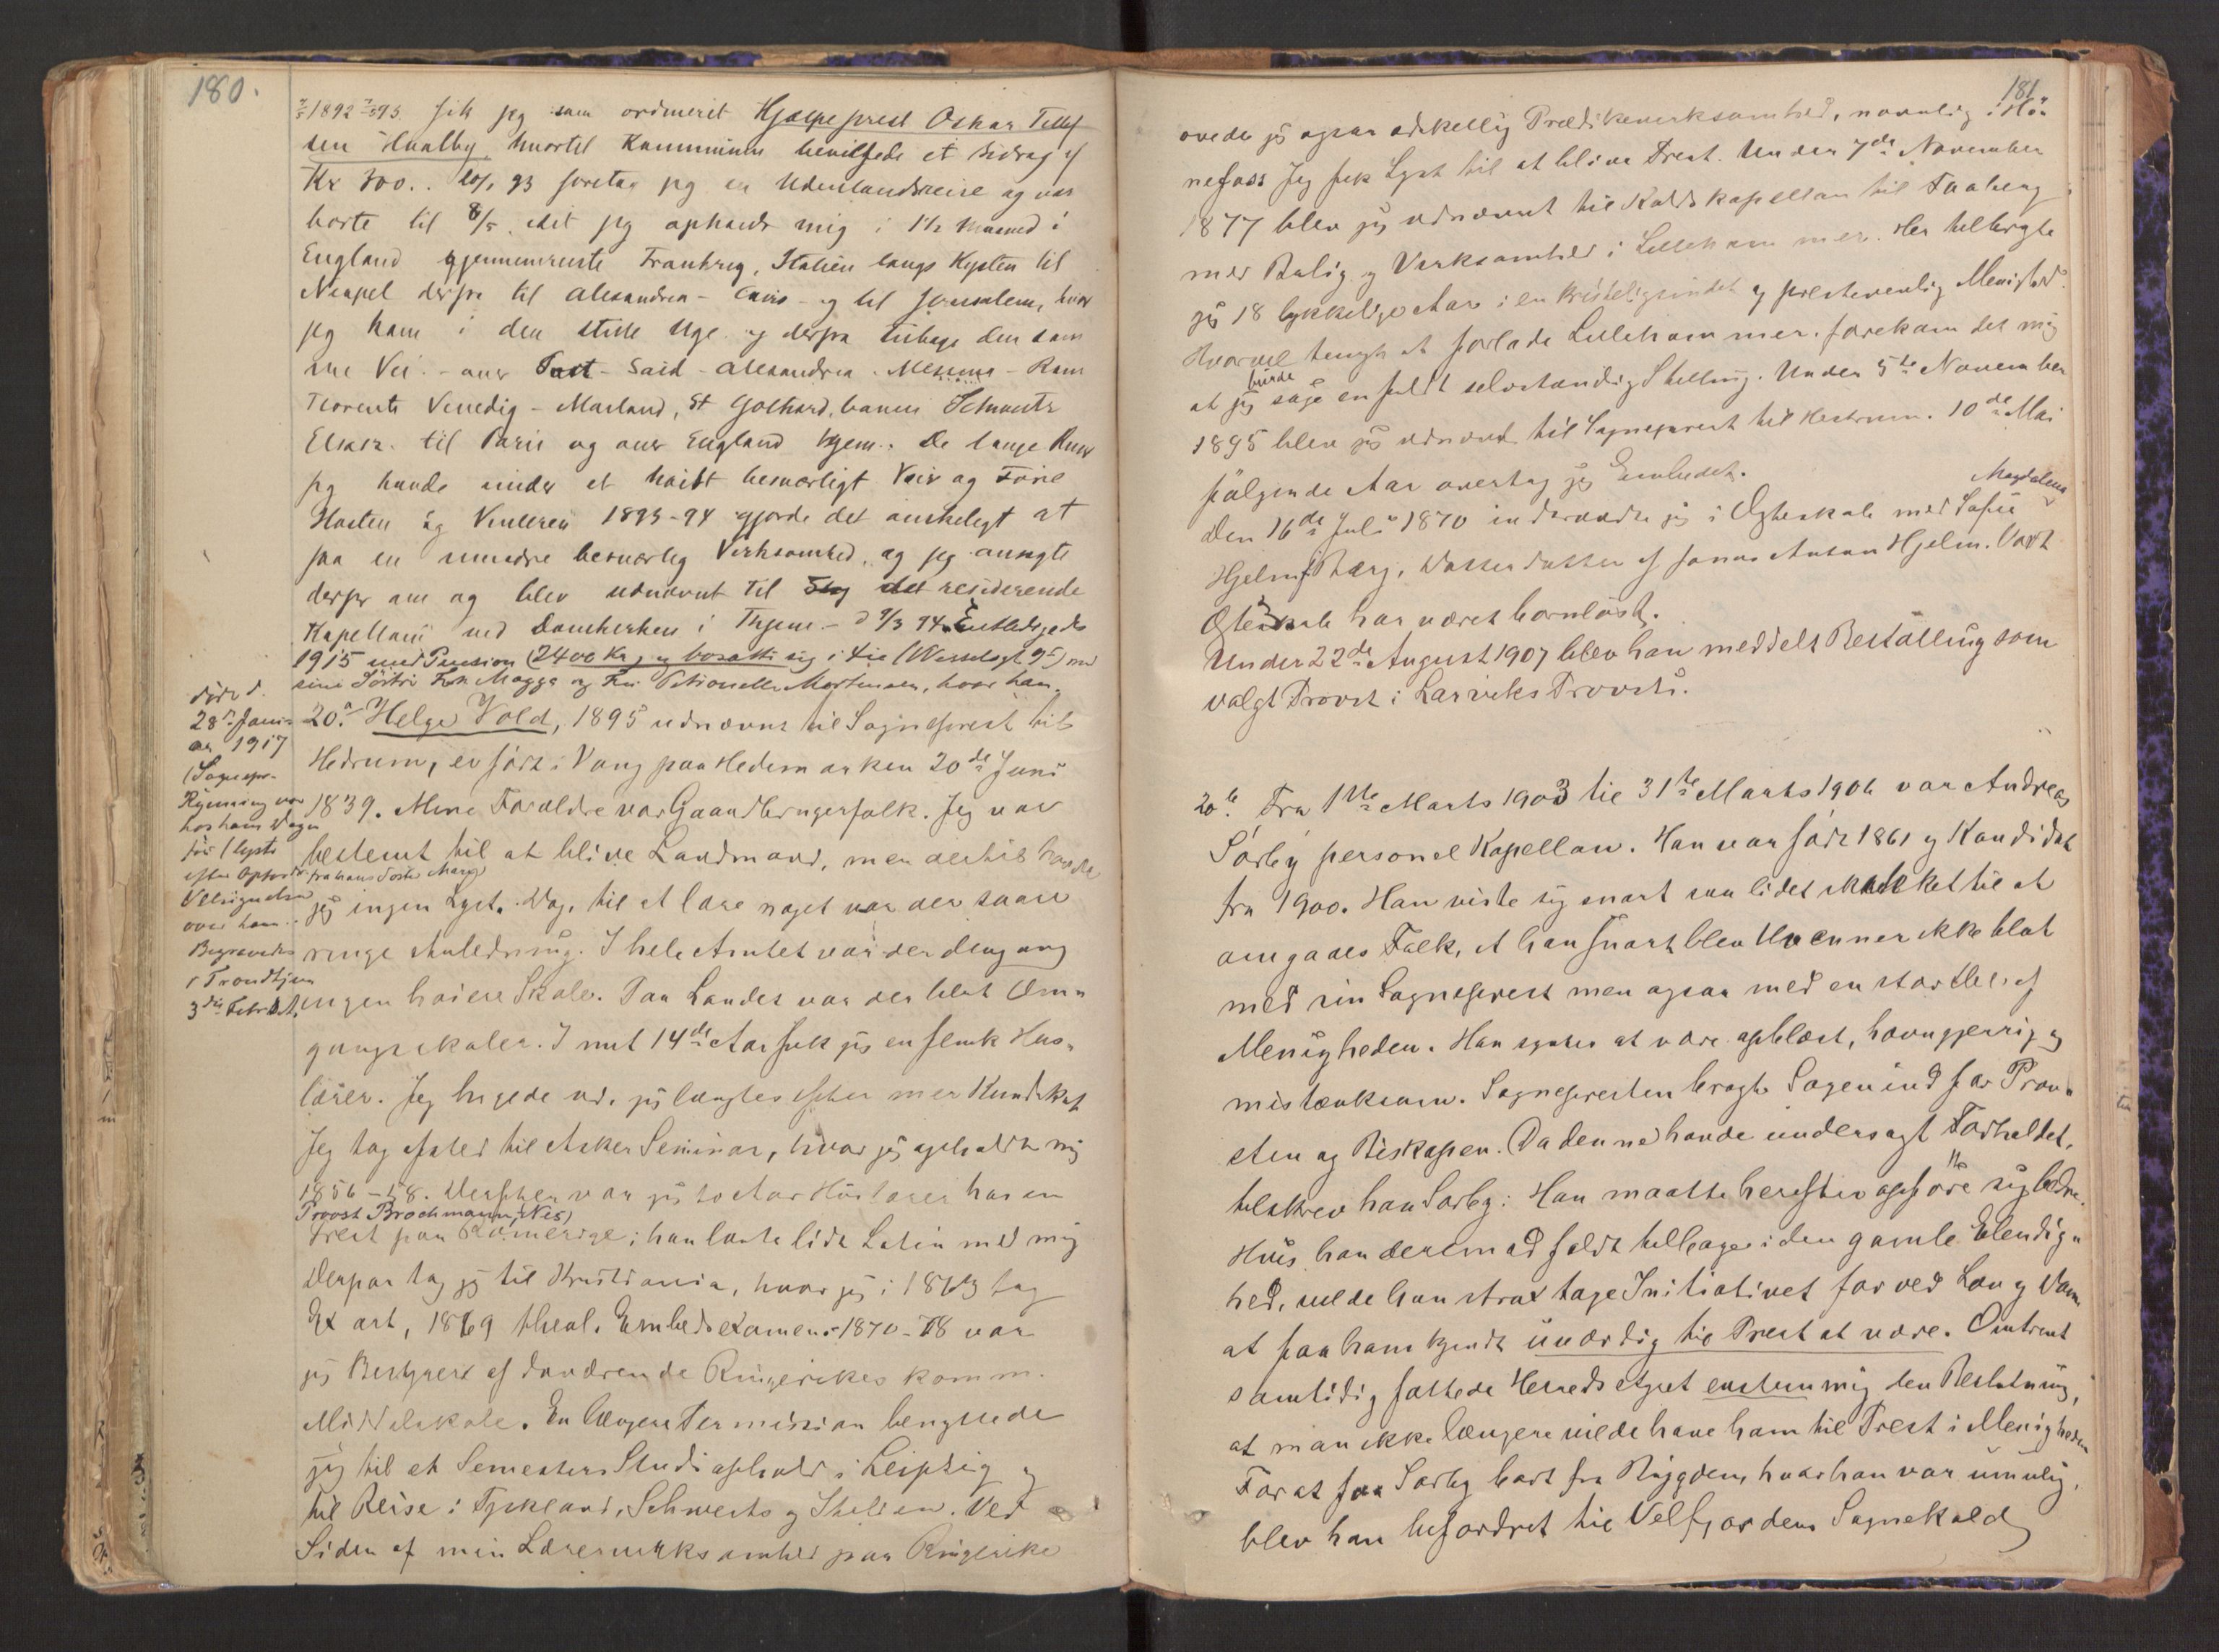 180.
1892 93. fik jeg som ordineret Hjælpeprest Oskar Tellef
sen Hvalby, hvortil Kommunen bevilgede et Bidrag af
Kr 300.. 93 foretog jeg en Udenlandsreise og var
borte til 8/5. idet jeg opholdt mig i 1½ Maaned i
England gjennemreiste Frankrig, Italien langs Kysten til
Neapel derfra til Alexandria - Cairo - og til Jerusalem, hvor
jeg kom i den stille Uge og derfra tilbage den sam
me Vei. - over Port - Said - Alexandria - Messina - Rom
Florents Venedig - Mailand, St Gothard, banen Schweitz
Elsas. til Paris og over England hjem. De lange Reiser
jeg havde under et høist besværligt Veir og Føre
Høsten og Vinteren 1893-94 gjorde det ønskeligt at
faa en mindre besværlig Virksomhed, og jeg ansøgte
derfor om og blev udnævnt til residerende
Kapellan ved Domkirken i Thjem - d 9/3 94. Entledigedes
1915 med Pension (2400 Kr) og bosatte sig i (Wesselsgt 9) med
sine Søstre Frk Magga og Fru Petronelle Mortensen, hvor han
døde d.
28de Janu-
ar 1917
(Sognepr.
Rynning var
hos ham Dagen
før (lyste
efter Opfordr. fra hans Søster Marg.)
Velsignelsen
over ham..
Begravedes
i Trondhjem
3die Febr.
20.a Helge Vold, 1895 udnævnt til Sogneprest til
Hedrum, er født i Vang paa Hedemarken 20de Juni
1839. Mine Forældre var Gaardbrugerfolk. Jeg var
bestemt til at blive Landmand, men dertil havde
jeg ingen Lyst. Dog, til at lære noget var der saare
ringe Anledning. I hele Amtet var der dengang
ingen høiere Skole. Paa Landet var der blot Om-
gangsskoler. I mit 14de Aar fik jeg en flink Hus-
lærer. Jeg higede ud, jeg længtes efter mer Kundskab
Jeg tog afsted til Asker Seminar, hvor jeg opholdt mig
1856-58. Derefter var jeg to Aar Huslærer hos en
Provst Brochmann, (Nes)
Prest paa Romerige; han læste lidt Latin med mig
Derpaa tog jeg til Kristiania, hvor jeg i 1863 tog
Ex art, 1869 theol. Embedsexamen. 1870-78 var
jeg Bestyrer af daværende Ringerikes komm.
Middelskole. En længere Permission benyttede
jeg til et Semesters Studiophold i Leipzig og
til Reise i Tyskland, Schweits og Italien. Ved
Siden af min Lærervirksomhed paa Ringerike
181
øvede jeg ogsaa adskellig Prædikevirksomhed, navnlig i Hø-
nefoss Jeg fik Lyst til at blive Prest. Under 7de November
1877 blev jeg udnævnt til Kaldskapellan til Faaberg
med Bolig og Virksomhed i Lillehammer. Her tilbragte
jeg 18 lykkelige Aar i en kristeligsindet og prestevenlig Menighed.
Hvorvel tungt at forlade Lillehammer, forekom det mig
at jeg burde søge en fuldt selvstændig Stilling. Under 5te November
1895 blev jeg udnævnt til Sogneprest til Hedrum. 10de Mai
følgende Aar overtog jeg Embedet.
Den 16de Juli 1870 indtraadte jeg i Ægteskab med Sofie Magdalena
Hjelm Berg, Datterdatter af Jonas Anton Hjelm. Vort
Ægteskab har været barnløst.
Under 22de August 1907 blev han meddelt Bestalling som
valgt Provst i Larviks Provsti.
20b. Fra 1ste Marts 1903 til 31te Marts 1906 var Andreas
Sörby personel Kapellan. Han var født 1861 og Kandidat
fra 1900. Han viste sig snart saa lidet skikket til at
omgaaes Folk, at han snart blev Uvenner ikke blot
med sin Sogneprest men ogsaa med en stor Del af
Menigheden. Han syntes at være opblæst, hævngjerrig og
mistænksom. Sognepresten bragte Sagen ind for Prov-
sten og Biskopen. Da denne havde undersøgt Forholdet,
tilskrev han Sørby: Han maatte herefter opføre sig bedre.
Hvis han derimod faldt tilbage i den gamle Elendig-
hed, vilde han strax tage Initiativet for ved Lov og Dom
at faa ham kjendt uværdig til Prest at være. Omtrent
samtidig fattede Herredsstyret enstemmig den Beslutning,
at man ikke længere vilde have ham til Prest i Menigheden
For at faa Sørby bort fra Bygden, hvor han var umulig,
blev han befordret til Velfjordens Sognekald